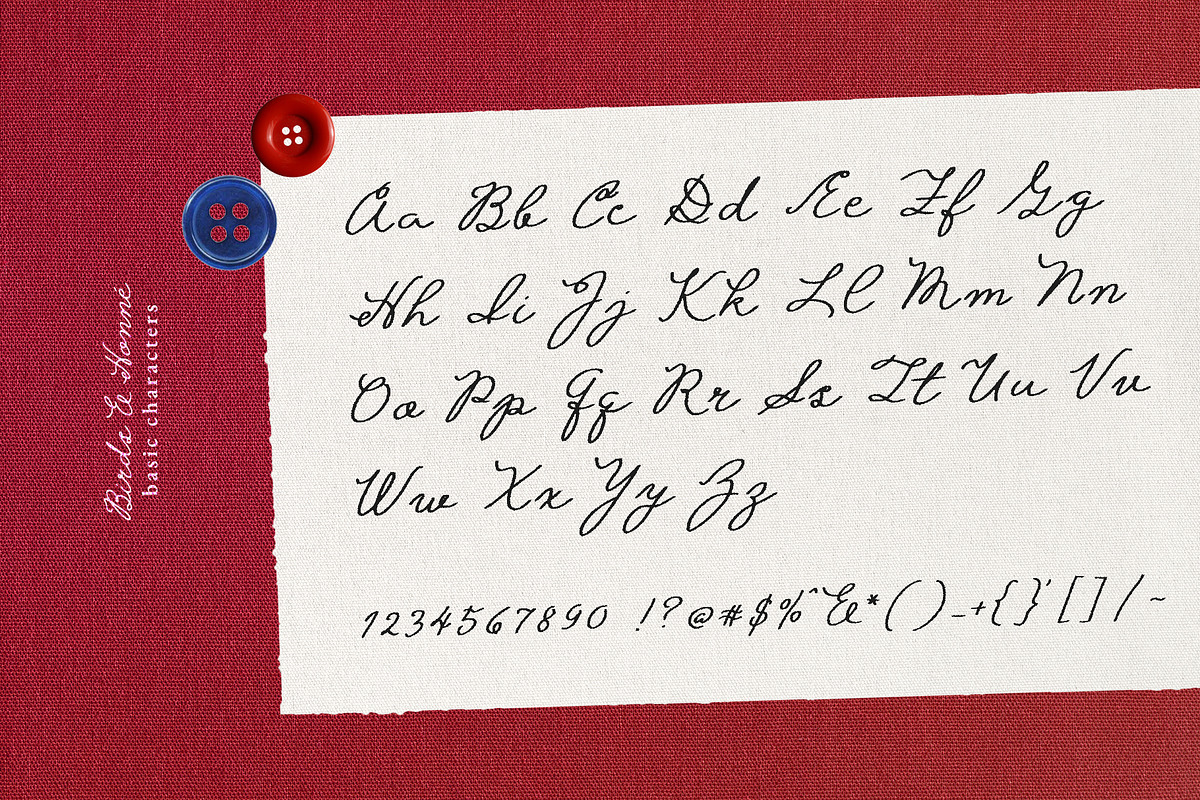 Birds & Honné
basic characters
Aa Bb Cc Dd Ee Ff Gg
Hh Ii Jj Kk Ll Mm Nn
Oo Pp Qq Rr Ss Tt Uu Vv
Ww Xx Yy Zz
1234567890 !?@#$%^&*()_+{}'[]/~